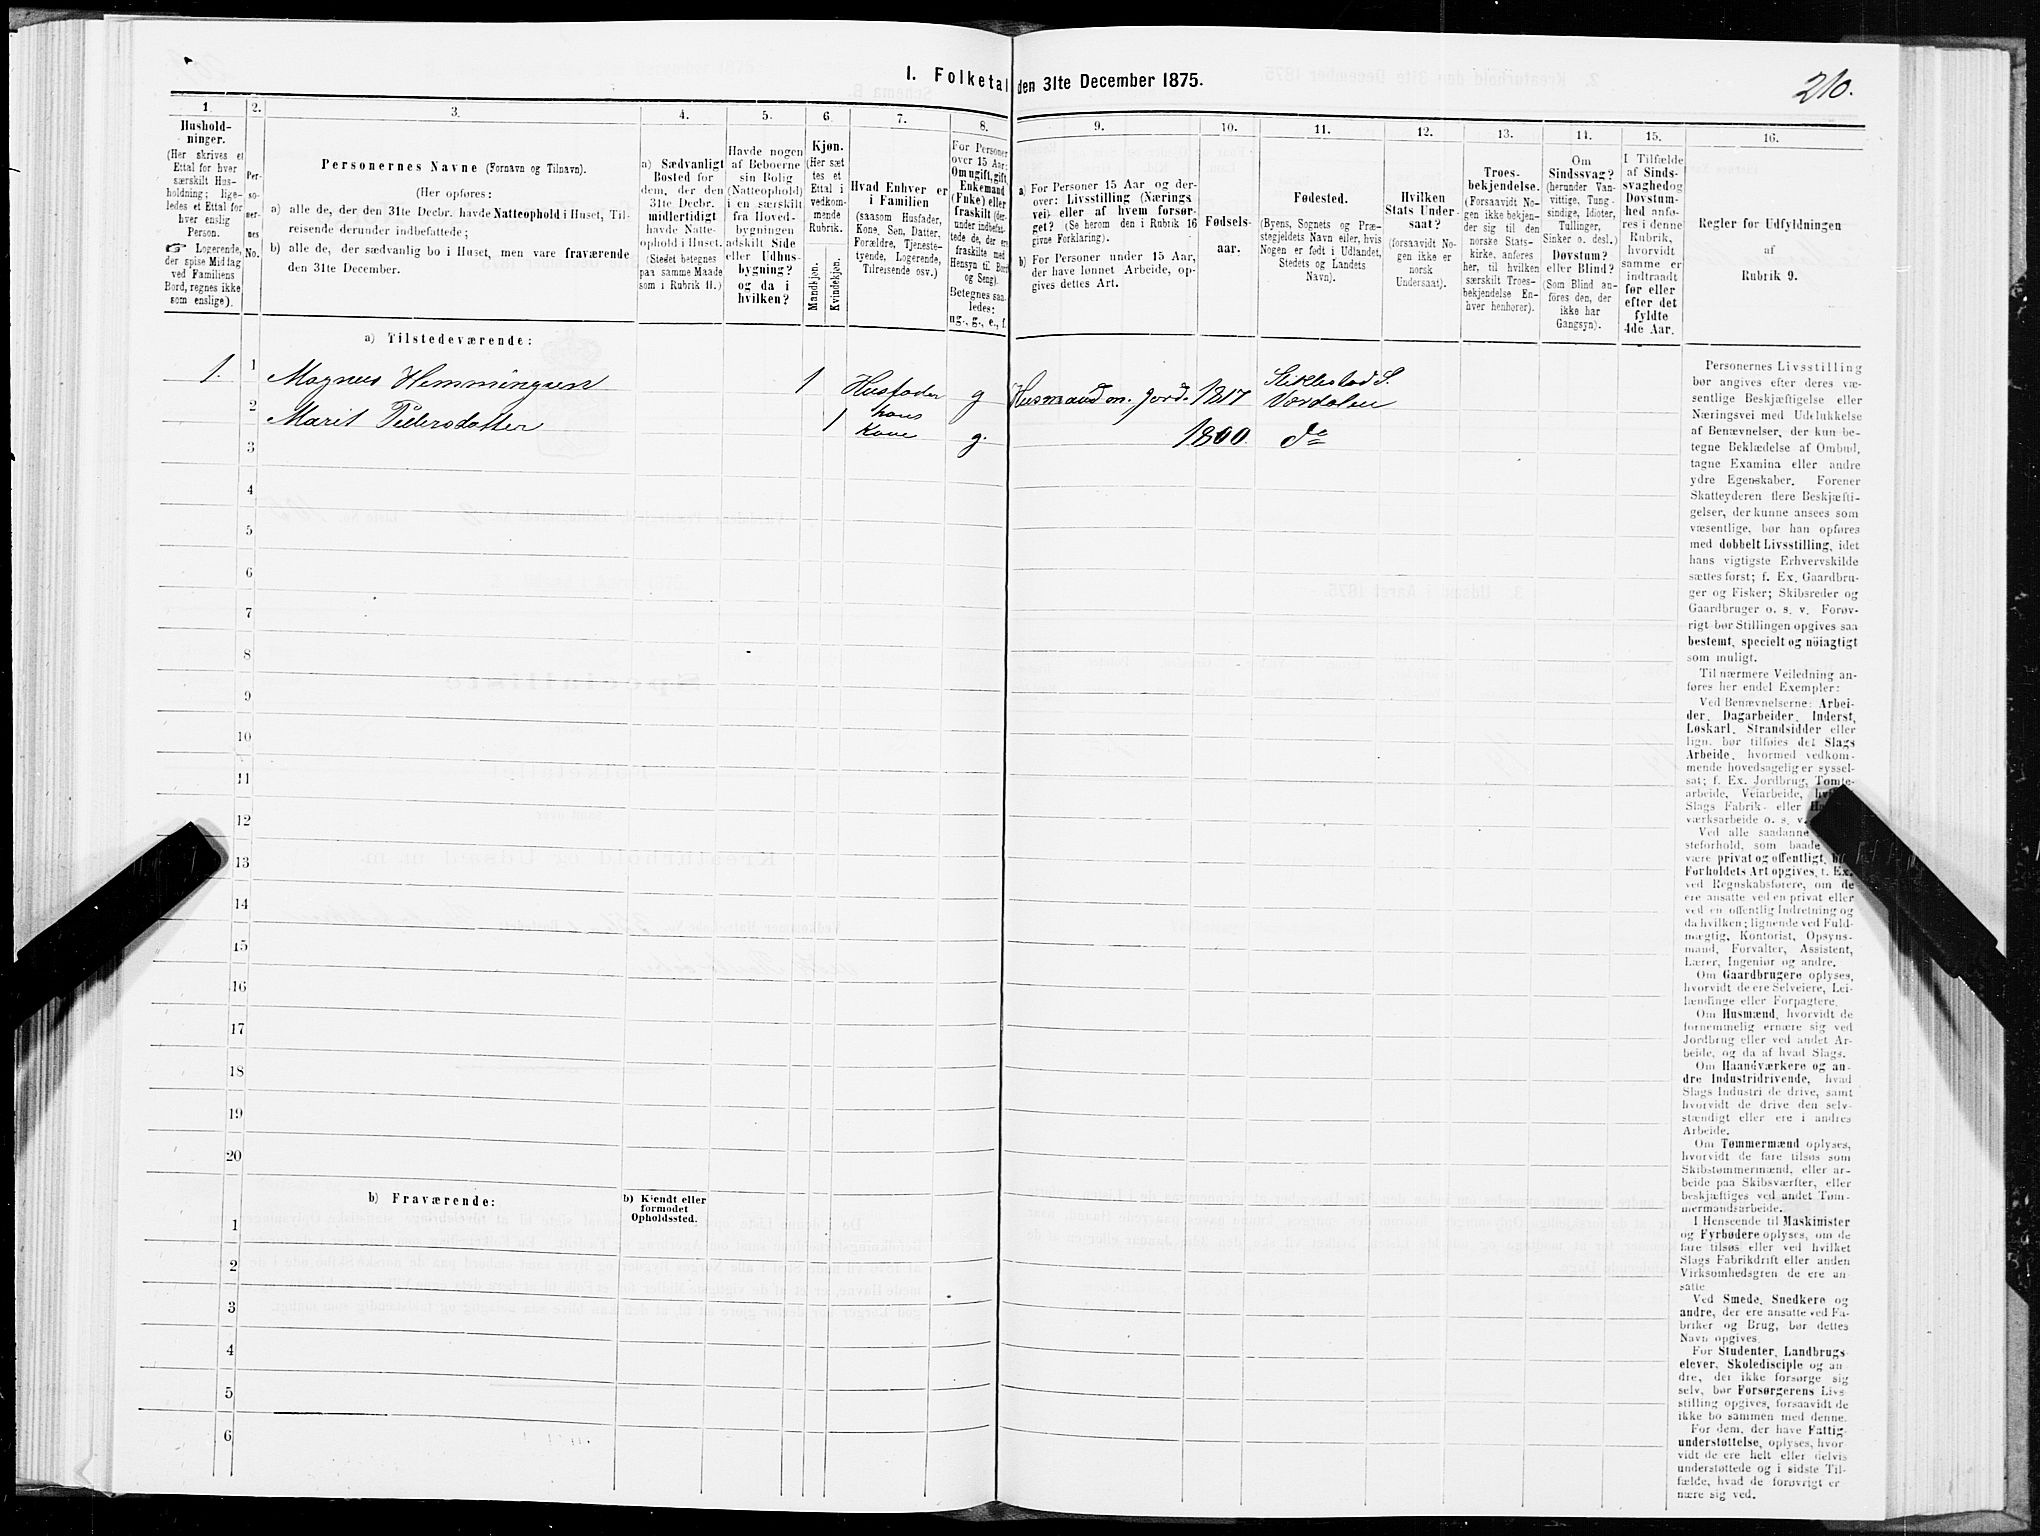 I. Folketal den 31te December 1875.
210.
1.
Hushold-
ninger.
(Her skrives et
Ettal for hver
særskilt Hus-
holdning; lige-
ledes et Ettal for
hver enslig
Person.
☞ Logerende,
der spise Middag
ved Familiens
Bord, regnes ikke
som enslige).
2.
Per-
so-
ner-
nes
No.
3.
Personernes Navne (Fornavn og Tilnavn).
(Her opføres:
a) alle de, der den 31te Decbr. havde Natteophold i Huset, Til-
reisende derunder indbefattede;
b) alle de, der sædvanlig bo i Huset, men vare fraværende
den 31te December.
4.
a) Sædvanligt
Bosted for
dem, der den
31te Decbr.
midlertidigt
havde Natte-
ophold i Huset.
(Stedet betegnes
paa samme Maade
som i Rubrik 11.)
5.
Havde nogen
af Beboerne
sin Bolig
(Natteophold)
i en særskilt
fra Hoved-
bygningen
adskilt Side
eller Udhus-
bygning?
og da i
hvilken?
6.
Kjøn.
(Her sæt
tes et
Ettal i
vedkom-
mende
Rubrik.
Mandkjøn.
Kvindekjøn.
7.
Hvad Enhver er
i Familien
(saasom Husfader,
Kone, Søn, Datter,
Forældre, Tjeneste-
tyende, Logerende,
Tilreisende osv.)
8.
For Personer
over 15 Aar:
Om ugift, gift,
Enkemand
(Enke) eller
fraskilt (der-
under indbefat-
tede de, der ere
fraskilte med
Hensyn til Bord
og Seng).
Betegnes saa-
ledes:
ug., g., e., f.
9.
a) For Personer 15 Aar og der-
over: Livsstilling (Nærings
vei eller af hvem forsør-
get? (Se herom den i Rubrik 16
givne Forklaring).
b) For Personer under 15 Aar,
der have lønnet Arbeide, op-
gives dettes Art.
10.
Fødsels-
aar.
11.
Fødested.
(Byens, Sognets og Præ-
stegjeldets Navn eller, hvis
Nogen er født i Udlandet,
Stedets og Landets
Navn).
12.
Hvilken
Stats Under-
saat?
(forsaavidt No-
gen ikke er
norsk
Undersaat).
13.
Troes-
bekjendelse.
(Forsaavidt No-
gen ikke bekjen-
der sig til den
norske Stats-
kirke, anføres
her, til hvilken
særskilt Troes-
bekjendelse En-
hver henhører).
14.
Om
Sindssvag?
(herunder Van-
vittige, Tung-
sindige, Idioter,
Tullinger,
Sinker o. desl.)
Døvstum?
eller Blind?
(Som Blind an-
føres den, der
ikke har
Gangsyn).
15.
I Tilfælde
af Sinds-
svaghed og
Døvstum-
hed anfø-
res i denne
Rubrik,
hvorvidt
samme er
indtraadt
før eller
efter det
fyldte
4de Aar.
16.
Regler før Udfyldningen
af
Rubrik 9.
a) Tilstedeværende:
1. 1 Magnus Hemmingsen 1 Husfader g Husmand m. Jord. 1817 Stiklestad S. Værdalen
2 Marit Pedersdatter 1 hans Kone g. 1800 do
3
4
5
6
7
8
9
10
11
12
13
14
15
16
17
18
19
20
b) Fraværende:
b) Kjendt eller
formodet
Opholdssted.
1
2
3
4
5
6
Personernes Livsstilling
bør angives efter deres væ-
sentlige Beskjæftigelse eller
Næringsvei med Udelukkelse
af Benævnelser, der kun be-
tegne Beklædelse af Ombud,
tagne Examina eller andre
ydre Egenskaber. Forener
Skatteyderen flere Beskjæfti-
gelser, der kunne ansees som
væsentlige, bør han opføres
med dobbelt Livsstilling, idet
hans vigtigste Erhvervskilde
sættes først; f. Ex. Gaardbru-
ger og Fisker; Skibsreder og
Gaardbruger o. s. v. Forøv-
rigt bør Stillingen opgives saa
bestemt, specielt og nöiagtigt
som muligt.
Til nærmere Veiledning an-
føres her endel Exempler:
Ved Benævnelserne: Arbei-
der, Dagarbeider, Inderst,
Løskarl, Strandsidder eller
lign. bør tilføies det Slags
Arbeide, hvormed vedkom-
mende hovedsagelig er syssel-
sat; f. Ex. Jordbrug, Tomte-
arbeide, Veiarbeide,
Slags Fabrik- eller
værksarbeide o. s. v.
Ved alle saadanne
steforhold, som baade
være privat og offentligt, bør
Forholdets Art opgives, f. Ex.
ved Regnskabsførere, om de
ere ansatte ved en privat eller
ved en offentlig Indretning og
da hvilken; lignende ved Fuld-
mægtig, Kontorist, Opsyns-
mand, Forvalter, Assistent,
Lærer, Ingeniør og andre.
Om Gaardbrugere oplyses,
hvorvidt de ere Selveiere, Lei-
lændinge eller Forpagtere.
Om Husmænd, hvorvidt de
fornemmelig ernære sig ved
Jordbrug eller ved andet Ar-
beide, og da af hvad Slags.
Om Haandværkere og an-
dre Industridrivende, hvad
Slags Industri de drive, samt
hvorvidt de drive den selv-
stændigt eller ere i andres
Arbeide.
Om Tømmermænd oplyses,
hvorvidt de fare tilsøs som
Skibstømmermænd, eller ar-
beide paa Skibsværfter, eller
beskjæftiges ved andet Tøm-
mermandsarbeide.
I Henseende til Maskinister
og Fyrbødere oplyses, om de
fare tilsøs eller ved hvilket
Slags Fabrikdrift eller anden
Virksomhedsgren de ere an-
satte.
Ved Smede, Snedkere og
andre, der ere ansatte ved Fa-
briker og Brug, bør dettes
Navn opgives.
For Studenter, Landbrugs-
elever, Skoledisciple og an-
dre, der ikke forsørge sig
selv, bør Forsørgerens Livs-
stilling opgives, forsaavidt de
ikke bo sammen med denne.
For dem, der have Fattig-
understøttelse, oplyses, hvor-
vidt de ere helt eller delvis
understøttede og i sidste Til-
fælde, hvad de forøvrigt er-
nære sig ved.